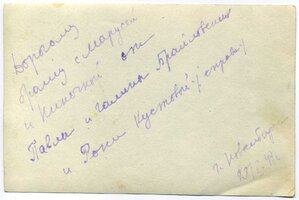 Дорогому
брату с Марусей
и Киночкой от
Павла и Галины Брайловских
и Рони Кустовой (справа)
г. Новосиб